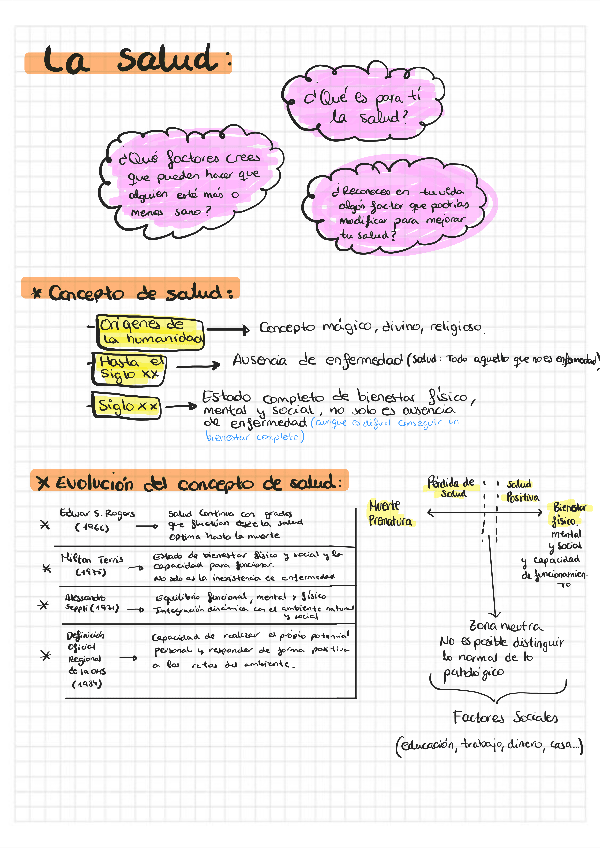 La Salud:
¿Qué es para tí
la salud?
¿Qué factores crees
que pueden hacer que
alguien esté más o
menos sano?
¿Reconoces en tu vida
algún factor que podrías
modificar para mejorar
tu salud?
* Concepto de salud:
Orígenes de
la humanidad
Concepto mágico, divino, religioso.
Hasta el
Siglo XX
Ausencia de enfermedad (salud: Todo aquello que no es enfermedad)
Siglo XX
Estado completo de bienestar físico,
mental y social, no solo es ausencia
de enfermedad (aunque es difícil conseguir un
bienestar completo)
* Evolución del concepto de salud:
* Edwar S. Rogers
(1966)
Salud continua con grados
que function desde la salud
optima hasta la muerte
* Milton Terris
(1975)
Estado de bienestar físico y social y la
capacidad para funcionar.
No solo es la inexistencia de enfermedad
* Alessandro
Seppli (1971)
Equilibrio funcional, mental y físico
Integración dinámica con el ambiente natural
y social
* Definición
Oficial
Regional
de la OMS
(1984)
Capacidad de realizar el propio potencial
personal y responder de forma positiva
a los retos del ambiente.
Pérdida de
salud
salud
Positiva
Muerte
Prematura
Bienestar
físico,
mental
y social
y capacidad
de funcionamien-
to
Zona neutra
No es posible distinguir
lo normal de lo
patológico
Factores Sociales
(educación, trabajo, dinero, casa...)